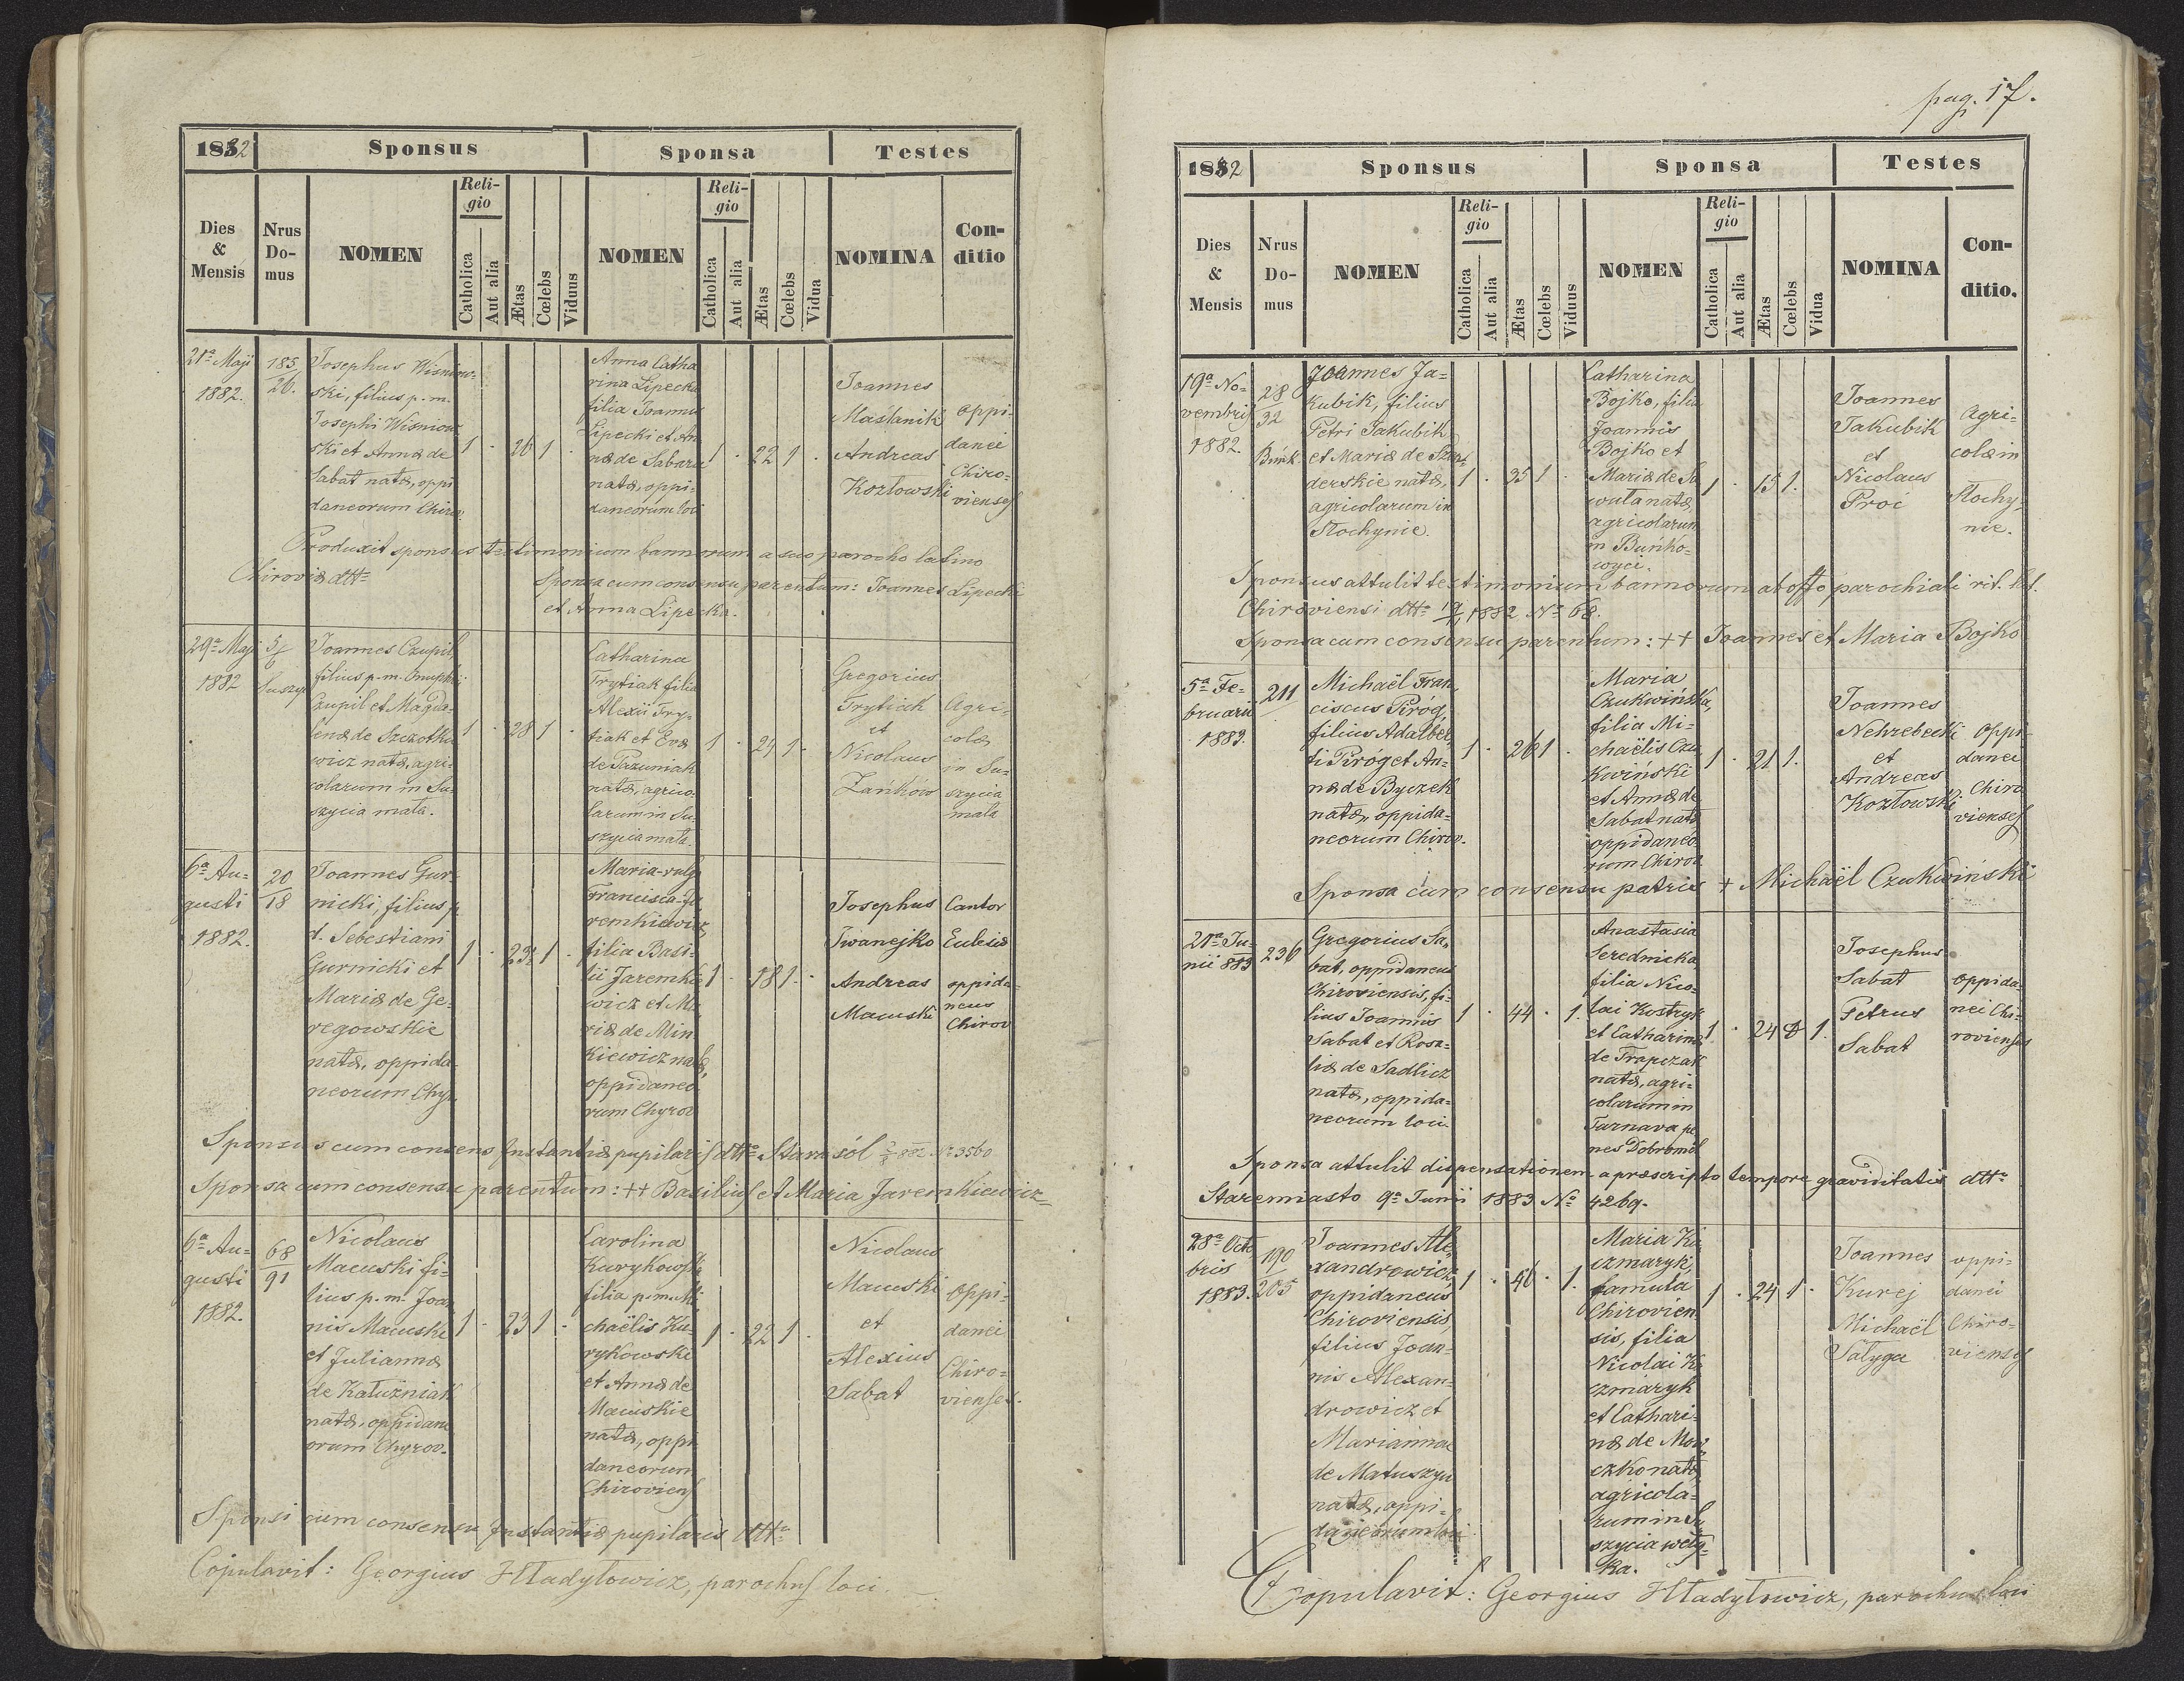 1882
Sponsus
Sponsa
Testes
Dies & Mensis
Nrus Do- mus
NOMEN
Reli- gio
Catholica
Aut alia
Ætas
Cœlebs
Viduus
NOMEN
Reli- gio
Catholica
Aut alia
Ætas
Cœlebs
Vidua
NOMINA
Con- ditio
21ª Maji
1882.
185
26.
Josephus Wisniow-
ski, filius p. m.
Josephi Wisniow
ski et Annæ de
Sabat natæ, oppi
daneorum Chirov.
1 · 26 1 ·
Anna Catha
rina Lipecka
filia Joannis
Lipecki et An
næ de Sabara
natæ, oppi-
daneorum loci
1 · 22 1 ·
Joannes
Maślanik
Andreas
Kozłowski
oppi-
danei
Chiro-
vienses
Produxit sponsus testimonium bannorum a suo parocho latino
Chiroviæ dtto
Sponsa cum consensu parentum: Joannes Lipecki
et Anna Lipecka.
29ª Maji
1882
5/6
Suszyc
Joannes Czupil,
filius p. m. Onuphri
Czupil et Magda-
lenæ de Szczotko
wicz natæ, agri-
colarum in Su-
szycia mała.
1 · 28 1 ·
Catharina
Trytiak filia
Alexii Try-
tiak et Evæ
de Pazuniak
natæ, agrico-
larum in Su-
szycia mała.
1 · 24 1 ·
Gregorius
Trytiak
et
Nicolaus
Zańków
Agri-
colæ
in Su-
szycia
mała
6ª Au-
gusti
1882.
20
18
Joannes Gur-
nicki, filius p.
d. Sebestiani
Gurnicki et
Mariæ de Ge-
regowskie
natæ, oppida-
neorum Chyr.
1 · 23 1 ·
Maria-vulgo
Francisca-Ja
remkiewicz,
filia Basi-
lii Jaremkie
wicz et Ma
riæ de Min
kiewicz natæ,
oppidaneo
rum Chyrov
1 · 18 1 ·
Josephus
Iwanejko
Andreas
Macuski
Cantor
Eclesiæ
oppida-
neus
Chirov
Sponsus cum consens Instantiæ pupilaris dtto Starasól 2/8 882 Nº 3560
Sponsa cum consensu parentum: ++ Basilius et Maria Jaremkiewicz
6ª Au-
gusti
1882.
68
91
Nicolaus
Macuski fi-
lius p. m. Joan
nis Macuski
et Juliannæ
de Kałużniak
natæ, oppidane
orum Chyrov.
1 · 23 1 ·
Carolina
Kurykowska
filia p. m. Mi
chaëlis Ku-
rykowski
et Annæ de
Macuskie
natæ, oppi
daneorum
Chiroviens
1 · 22 1 ·
Nicolaus
Macuski
et
Alexius
Sabat
oppi-
danei
Chiro-
vienses.
Sponsi cum consensu Instantiæ pupilaris dtto
Copulavit: Georgius Hładyłowicz, parochus loci.
pag. 17.
1882
Sponsus
Sponsa
Testes
Dies & Mensis
Nrus Do- mus
NOMEN
Reli- gio
Catholica
Aut alia
Ætas
Cœlebs
Viduus
NOMEN
Reli- gio
Catholica
Aut alia
Ætas
Cœlebs
Vidua
NOMINA
Con- ditio.
19ª No-
vembris
1882.
28
32
Buńk.
Joannes Ja-
kubik, filius
Petri Jakubik
et Mariæ de
derskie natæ,
agricolarum in
Słochynie.
1 · 35 1 ·
Catharina
Bojko, filia
Joannis
Bojko et
Mariæ de Sa
wuła natæ
agricolarum
in Buńko-
wyci.
1 · 15 1.
Joannes
Jakubik
et
Nicolaus
Proć
Agri-
colæ in
Słochy-
nie.
Sponsus attulit testimonium bannorum ab offo parochiali rit. lat.
Chiroviensi dtto 19/11 1882 Nº 68.
Sponsa cum consensu parentum: ++ Joannes et Maria Bojko
5ª Fe-
bruarii
1883.
211
Michaël Fran
ciscus Pirog,
filius Adalber
ti Piróg et An-
næ de Byczek
natæ, oppida-
neorum Chirov.
1 · 26 1 ·
Maria
Czukwińska,
filia Mi-
chaëlis Czu
kwiński
et Annæ de
Sabat natæ
oppidaneo
rum Chirov.
1 · 21 1.
Joannes
Nehrebecki
et
Andreas
Kozłowski
oppi-
danei
Chiro
vienses
Sponsa cum consensu patris + Michaël Czukwiński
21ª Ju-
nii 883
236
Gregorius Sa-
bat, oppidaneus
Chiroviensis, fi-
lius Joannis
Sabat et Rosa-
liæ de Sadlicz
natæ, oppida-
neorum loci.
1 · 44 · 1.
Anastasia
Serednicka
filia Nico-
lai Kostryk
et Catharinæ
de Trapczak
natæ, agri-
colarum in
Tarnava pe
nes Dobromil
1 · 24 1.
Josephus
Sabat
Petrus
Sabat
oppida-
nei Chi-
rovienses
Sponsa attulit dispensationem a præscripto tempore graviditatis dtto
Staremiasto 9ª Junii 1883 Nº 4269.
28ª Octo
bris
1883.
190
205
Joannes Ale
xandrowicz,
oppidaneus
Chiroviensis,
filius Joan-
nis Alexan-
drowicz et
Mariannae
de Matuszyn
natæ, oppi-
daneorum loci.
1 · 46 · 1.
Maria Ka
czmaryk,
famula
Chirovien
sis, filia
Nicolai Ka
czmaryk
et Cathari-
næ de Mow
czko natæ
agricola-
rum in Su
szycia wely-
ka.
1 · 24 1 ·
Joannes
Kurej
Michaël
Sałyga
oppi-
danei
Chiro-
vienses
Copulavit: Georgius Hładyłowicz, parochus loci